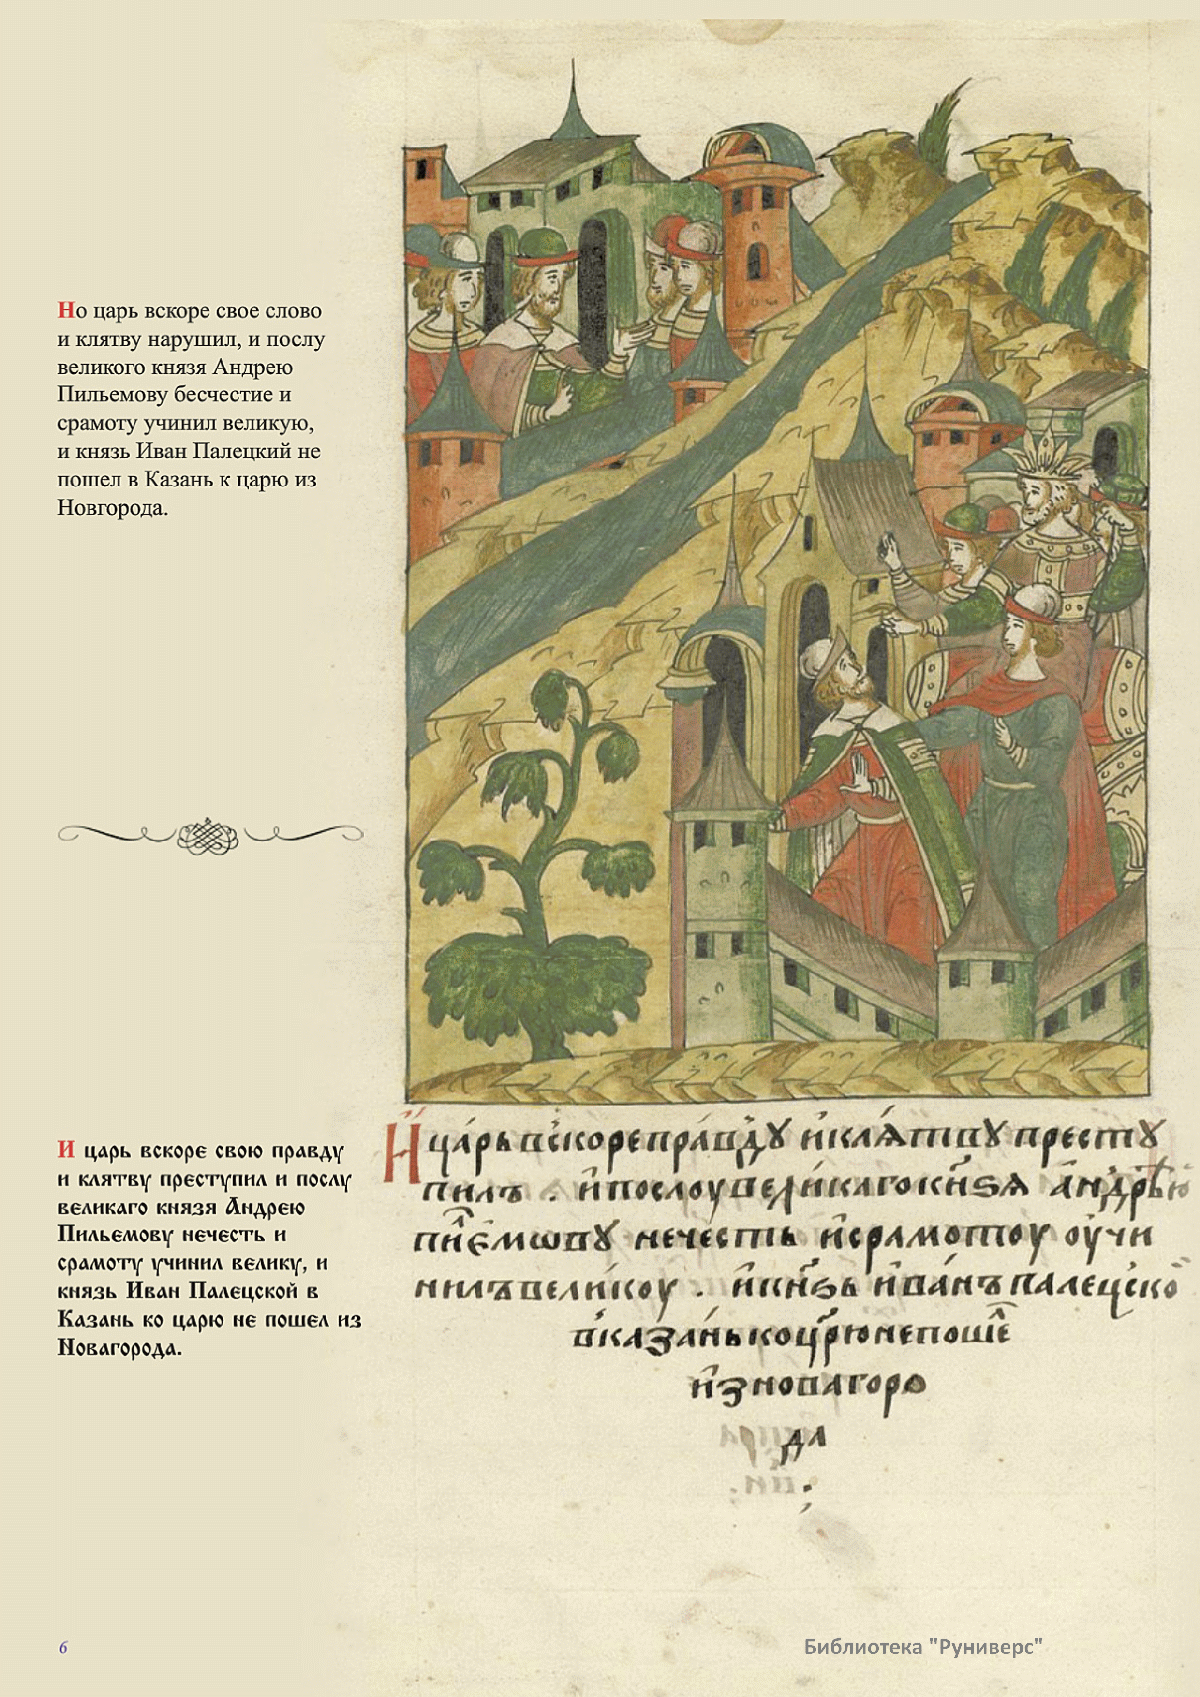 Но царь вскоре свое слово
и клятву нарушил, и послу
великого князя Андрею
Пильемову бесчестие и
срамоту учинил великую,
и князь Иван Палецкий не
пошел в Казань к царю из
Новгорода.
И царь вскоре свою правду
и клятву преступил и послу
великаго князя Андрею
Пильемову нечесть и
срамоту учинил велику, и
князь Иван Палецской в
Казань ко царю не пошел из
Новагорода.
И҆ ца́рь вско́ре пра́вдꙋ и҆ клѧ́твꙋ престꙋ
пилъ . и҆ послоу вели́каго кн҃ѕѧ а҆ндрѣ́ю
пи҆є́мѡвꙋ нече́сть и҆ срамотоу оу҆чи
нилъ вели́коу . и҆ кн҃ѕь и҆ва́нъ палецско
в каза́нь ко цр҃ю не поше
и҆з новагоро
да
:
6
Библиотека "Руниверс"